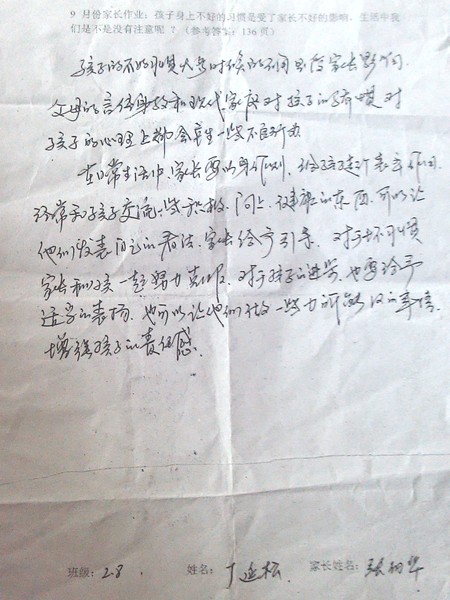 9 月份家长作业：孩子身上不好的习惯是受了家长不好的影响，生活中我
们是不是没有注意呢？（参考答案：136 页）
孩子的不好习惯大多时候的不同是受家长影响.
父母的言传身教和现代家庭对孩子的溺爱对
孩子的心理上都会产生一些不良行为
在日常生活中,家长要以身作则,给孩子起个表率作用
经常和孩子交流一些积极、向上、健康的东西,可以让
他们发表自己的看法,家长给予引导,对于坏习惯
家长和孩一起努力克服,对于孩子的进步,也要给予
适当的表扬,也可以让他们做一些力所能及的事情,
增强孩子的责任感.
班级: 2.8 . 姓名: 丁延松 家长姓名: 张